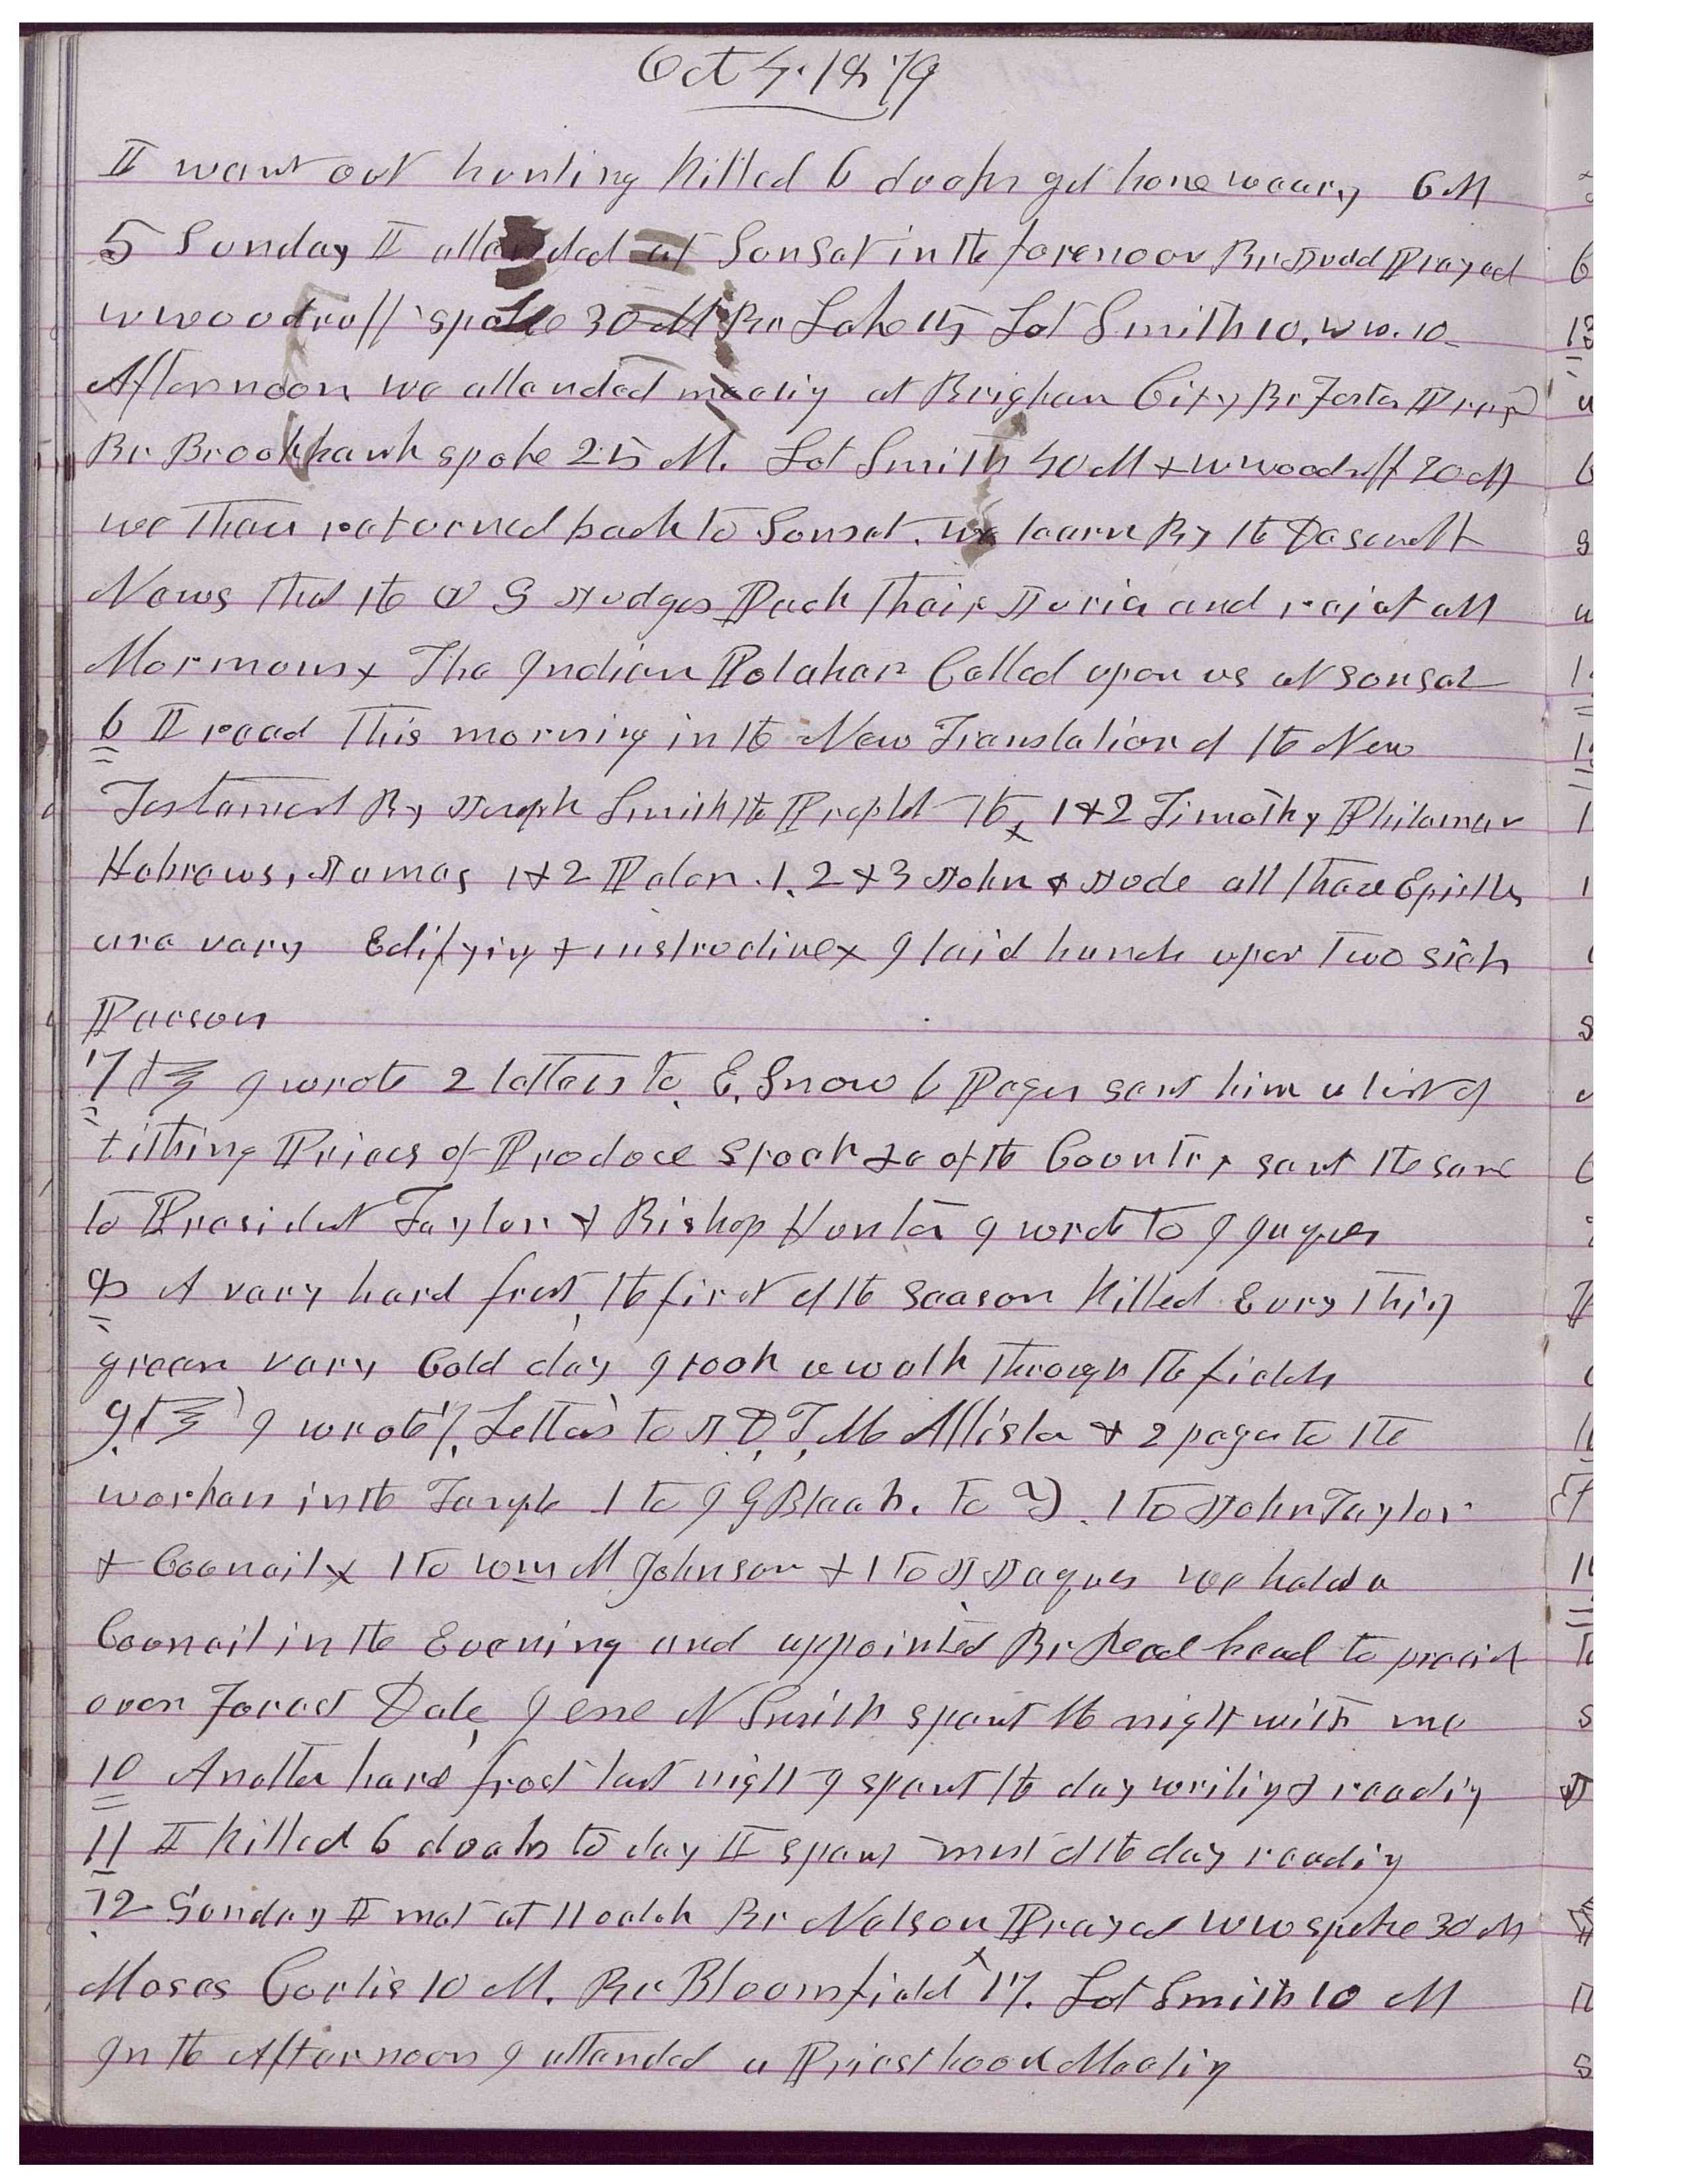 Oct 4. 1879
I went out hunting killed 6 ducks got home weary 6 M
5 Sunday I attended at Sunset in the forenoon Br Judd Prayed
W Woodruff spoke 30 M Br Lake 15 Lot Smith 10, W W. 10
Afternoon we attended meeting at Brigham City Br Foster Prayed
Br Brookbank spoke 25 M. Lot Smith 40 M & W Woodruff 20 M
we then returned back to Sunset. we learn By the Deserett
News that the U S Judges Pack their Juries and reject all
Mormons, The Indian Polakar Called upon us at Sunset
6 I read this morning in the New Translation of the New
Testament By Joseph Smith the Prophet the, 1 & 2 Timothy Philemon
Hebrews, James 1 & 2 Peter. 1. 2 & 3 John & Jude all these Epistles
are very Edifying & instructive, I laid hands upon two sick
Person
7 I wrote 2 letters to E, Snow 6 Pages sent him a list of
tithing Prices of Produce Stock &c of the Country sent the same
to President Taylor & Bishop Hunter I wrote to J Jaques
8 A very hard frost, the first of the Season killed Evry thing
green very Cold day I took a walk through the fields
9 I wrote 7 Letters to J. D, T, Mc Allister & 2 pages to the
workers in the Temple 1 to J G Bleak. to 1 to John Taylor
& Council, 1 to Wm M Johnson & 1 to J Jaques we held a
Council in the Evening and appointed Br Read head to preside
over Forest Dale, Jesse N Smith spent the night with me
10 Another hard frost last night I spent the day writing & reading
11 I killed 6 ducks to day I spent most of the day reading
12 Sunday I met at 11 oclok Br Nelson Prayed W W spoke 30 M
Moses Curtis 10 M. Br Bloomfield 17. Lot Smith 10 M
In the Afternoon I attended a Priesthood Meeting